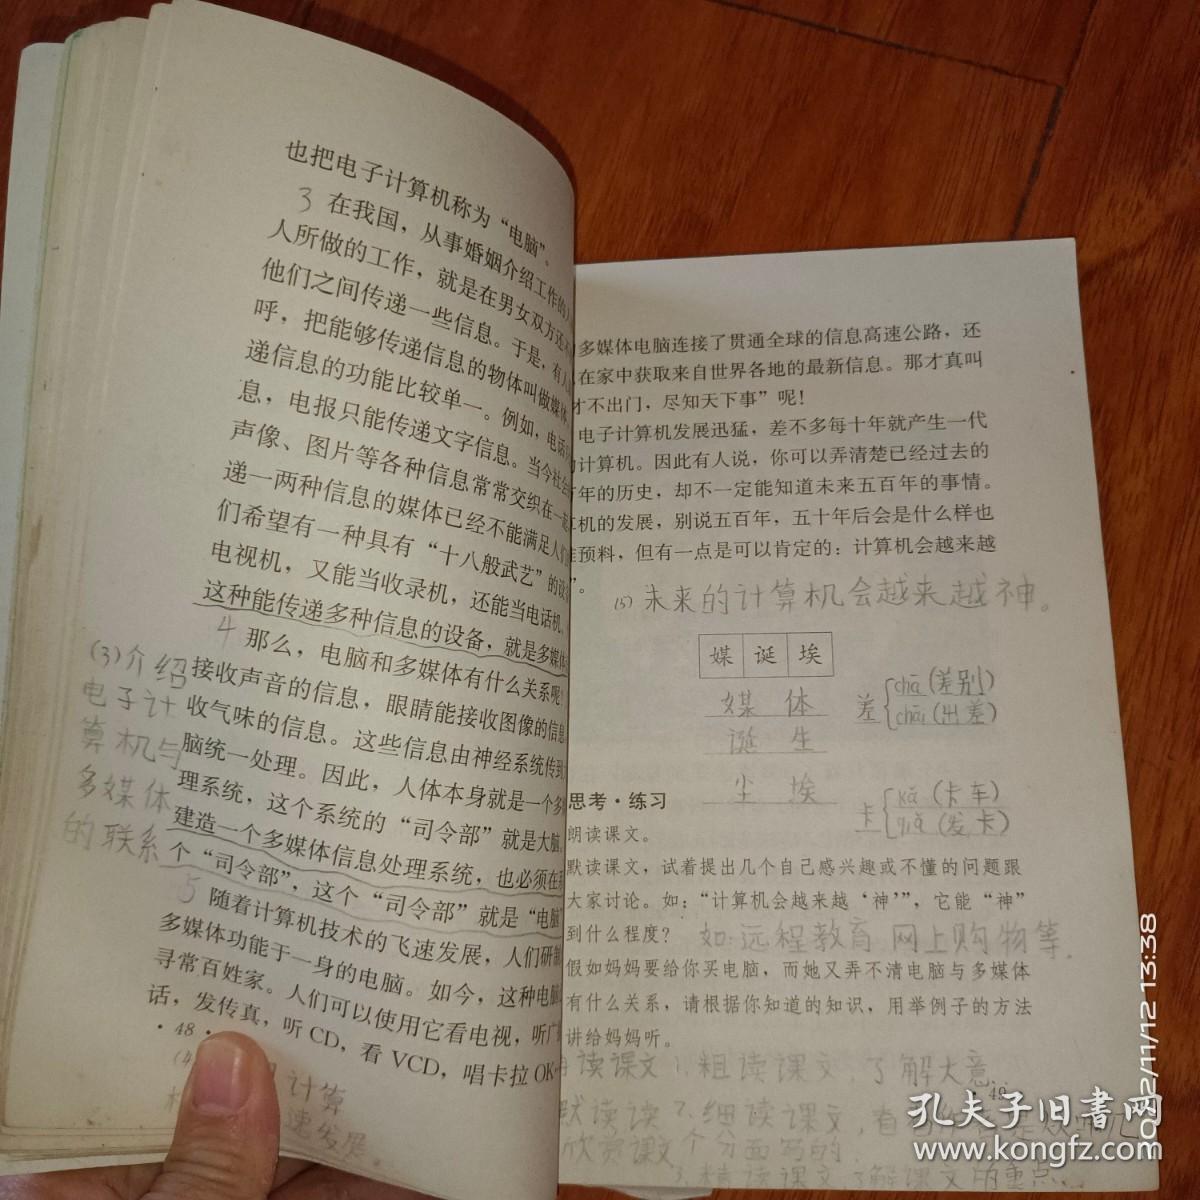 也把电子计算机称为“电脑”。
3 在我国，从事婚姻介绍工作的
人所做的工作，就是在男女双方还
他们之间传递一些信息。于是，有人
呼，把能够传递信息的物体叫做媒体
递信息的功能比较单一。例如，电话
息，电报只能传递文字信息。当今社会
声像、图片等各种信息常常交织在一
递一两种信息的媒体已经不能满足人
们希望有一种具有“十八般武艺”的设
电视机，又能当收录机，还能当电话机。
这种能传递多种信息的设备，就是多媒体
4 那么，电脑和多媒体有什么关系呢
接收声音的信息，眼睛能接收图像的信息
收气味的信息。这些信息由神经系统传到
脑统一处理。因此，人体本身就是一个多
理系统，这个系统的“司令部”就是大脑。
建造一个多媒体信息处理系统，也必须在
个“司令部”，这个“司令部”就是“电脑”
5 随着计算机技术的飞速发展，人们研制
多媒体功能于一身的电脑。如今，这种电脑
寻常百姓家。人们可以使用它看电视，听广
话，发传真，听CD，看VCD，唱卡拉OK
·48·
(3)介绍
电子计
算机与
多媒体
的联系
(4
计算
速发展。
多媒体电脑连接了贯通全球的信息高速公路，还
在家中获取来自世界各地的最新信息。那才真叫
才不出门，尽知天下事”呢！
电子计算机发展迅猛，差不多每十年就产生一代
计算机。因此有人说，你可以弄清楚已经过去的
百年的历史，却不一定能知道未来五百年的事情。
机的发展，别说五百年，五十年后会是什么样也
预料，但有一点是可以肯定的：计算机会越来越
”。
(5)未来的计算机会越来越神。
媒 诞 埃
媒体
诞生
尘埃
差 chā(差别)
chāi(出差)
卡 kǎ(卡车)
qiǎ(发卡)
思考·练习
朗读课文。
默读课文，试着提出几个自己感兴趣或不懂的问题跟
大家讨论。如：“计算机会越来越‘神’”，它能“神”
到什么程度？
如：远程教育 网上购物等.
假如妈妈要给你买电脑，而她又弄不清电脑与多媒体
有什么关系，请根据你知道的知识，用举例子的方法
讲给妈妈听。
读课文 1.粗读课文，了解大意.
49
默读读 2.细读课文，
欣赏课文 个方面写的.
3.精读课文了解课文的重点.
孔夫子旧书网
www.kongfz.com
2/11/12 13:38